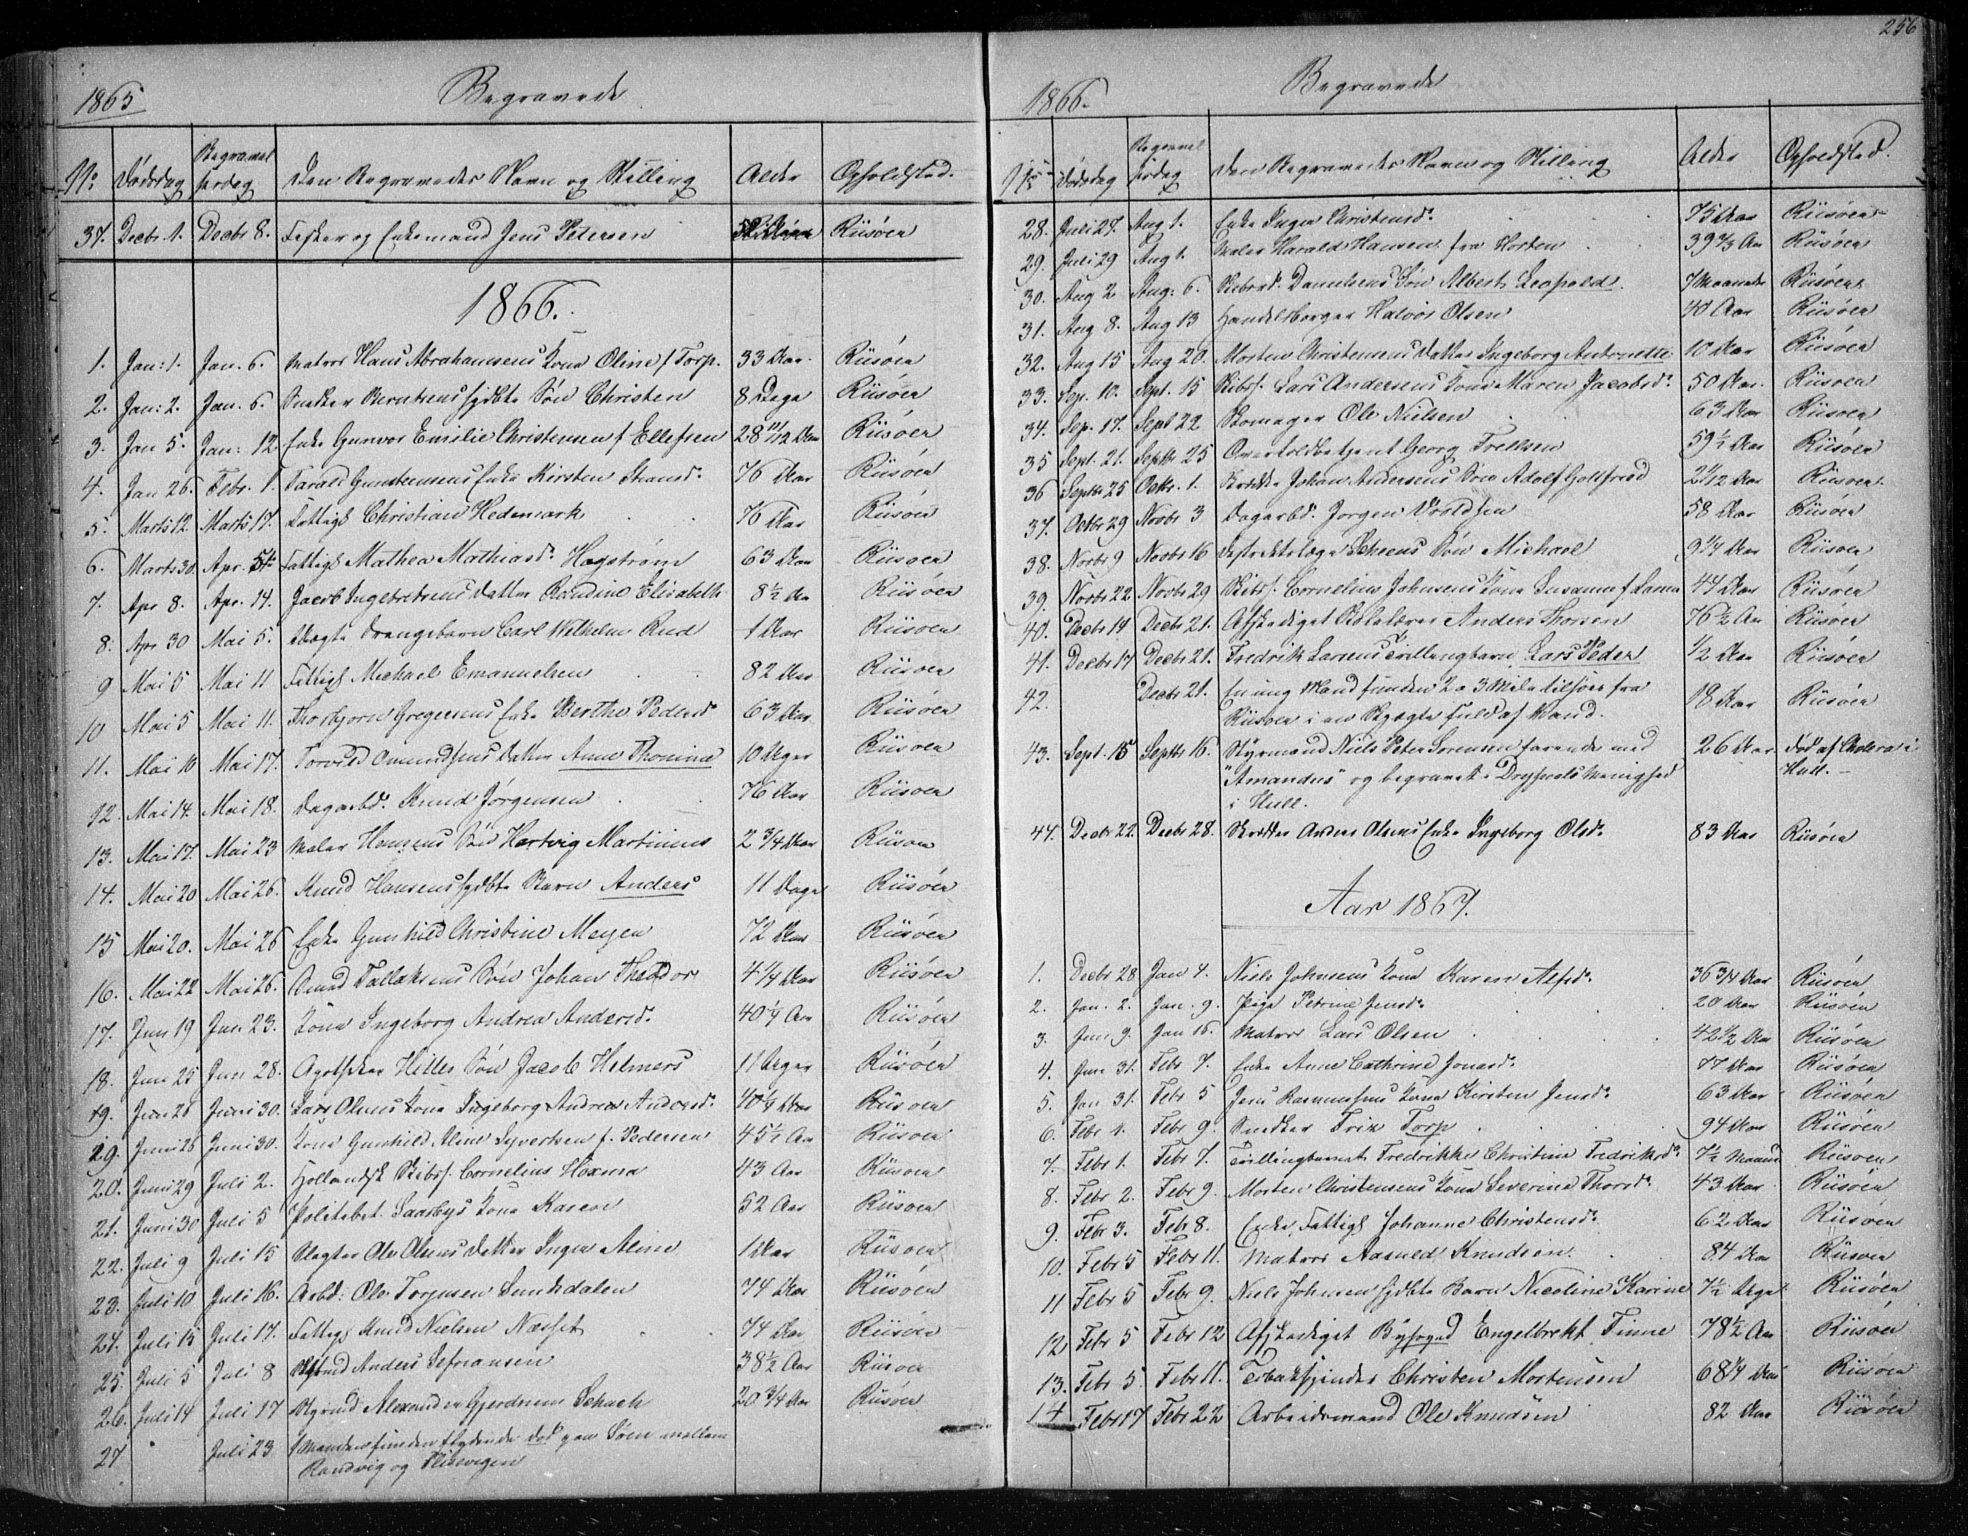 256
1865
Begravede
No Dødsdag Begravelsesdag Den Begravedes Navn og Stilling Alder Opholdsted.
37. Decbr 1. Decbr 8. Fisker og Enkemand Jens Petersen Riisøer
1866.
1. Jan: 1. Jan. 6. Matros Hans Abrahamsens Kone Oline f. Torp. 33 Aar. Riisøer
2. Jan: 2. Jan. 6. Snedker Berntsens hjdbte Søn Christen 8 Dage Riisøer
3. Jan 5. Jan: 12 Enke Gunvor Emilie Christensen f. Ellefsen 28 11/12 Aar Riisøer
4. Jan 26. Febr. 1. Tarald Gunstensens Enke Kirsten 76 Aar Riisøer
5. Marts 12. Marts 17. Fattigl. Christian Hedemark 76 Aar Riisøer
6. Marts 30. Apr. 5. Fattigl. Mathea Mathiasd. Hagstrøm 63 Aar Riisøer
7. Apr 8. Apr. 14. Jacob Ingebretsens Datter Randine Elisabeth 8½ Aar Riisøer
8. Apr 30 Mai 5. Uægte Drengebarn Carl Wilhelm Rud 1 Aar Riisøer
9 Mai 5 Mai 11 Fattigl. Michael Emanuelsen 82 Aar Riisøer
10 Mai 5 Mai 11. Thorbjørn Gregersens Enke Berthe Pedersd. 63 Aar Riisøer
11. Mai 10 Mai 17. Torvald Amundsens Datter Anne Thomine 10 Uger Riisøer
12. Mai 14. Mai 18. Dagarbd. Knud Jørgensen 76 Aar Riisøer
13. Mai 17. Mai 23 Maler Hansens Søn Hartvig Martinius 2 3/4 Aar Riisøer
14. Mai 20 Mai 26. Knud Hansens hjdbte Barn Anders 11 Dage Riisøer
15 Mai 20. Mai 26 Enke Gunhild Christine Meyer 72 Aar Riisøer
16. Mai 22 Mai 26. Amund Tallaksens Søn Johan Theodor 4 1/4 Aar Riisøer
17. Juni 19 Juni 23. Kone Ingeborg Andrea Andersd. 40 1/4 Aar Riisøer
18. Juni 25 Juni 28. Apotheker Hilles Søn Jacob Helmers 11 Uger Riisøer
19. Juni 26 Juni 30. Lars Olsens Kone Ingeborg Andrea Andersd. 40 1/4 Aar Riisøer
29. Juni 26 Juni 30. Kone Gunhild Aline Syvertsen f. Pedersen 45½ Aar Riisøer
20. Juni 29 Juli 2. Hollandsk Skibsf. Cornelius Hoxma 43 Aar Riisøer
21. Juni 30 Juli 5 Politibet. Saarbys Kone Karen 52 Aar Riisøer
22. Juli 9 Juli 15 Slagter Ole Olsens Datter Inger Aline 1 Aar Riisøer
23. Juli 10 Juli 16. Arbd: Ole Torjusen Sundsdalen 74 Aar Riisøer
24. Juli 15 Juli 17. Fattigl. Knud Nielsen Næsset 74 Aar Riisøer
25. Juli 5 Juli 8 Anders Sefaniasen 38½ Aar Riisøer
26. Juli 14 Juli 17 Styrmd Alexander Gjerdrum Schach 20 3/4 Aar Riisøer
27 Juli 23 1 Mandsen funden flydende død paa Søen mellem
Randvig og
1866.
Begravede
No Dødsdag Begravelsesdag Den Begravedes Navn og Stilling Alder Opholdsted.
28. Juli 27. Aug 1. Enke Inger Christensd. 75 Aar Riisøer
29. Juli 29 Aug 1. Maler Harald Hansen fra Horten 39 2/3 Aar Riisøer
30. Aug 2 Aug: 6. Danielsens Søn Albert Leopold. 7 Maaneder Riisøer
31. Aug 8. Aug 13 Handelsborger Halvor Olsen 40 Aar Riisøer
32. Aug 15 Aug 20. Morten Christensens Datter Ingeborg Antonette 10 Aar Riisøer
33. Sep. 10. Sept. 15 Skibsf. Lars Andersens Kone Maren Jacobsd. 50 Aar. Riisøer
34. Sep. 17. Sept 22 Skomager Ole Nielsen 63 Aar Riisøer
35 Sept. 21. Septbr 25 Overtoldbetjent Georg Trellsen 59½ Aar Riisøer
36 Septbr 25 Octbr. 1. Johan Andersens Søn Adolf Gottfried 2 1/12 Aar Riisøer
37. Octbr 29 Novbr 3 Dagarbd. Jørgen 58 Aar Riisøer
38. Novbr 9 Novbr 16 Distriktslæge Scheens Søn Michael 9 1/4 Aar Riisøer
39. Novbr 22 Novbr 29 Skibsf. Cornelius Johnsens Kone Susanne f. 44 Aar Riisøer
40. Decbr 14 Decbr 21. Afskediget Anders Thorsen 76½ Aar Riisøer
41. Decbr 17 Decbr 21. Fredrik Larsens Tvillingbarn Lars Peder ½ Aar Riisøer
42. Decbr 21. En ung Mand funden 2 a 3 Mile tilsøes fra
Riisøer i en Skjøgte fuld af Vand. 18 Aar Riisøer
43. Sept. 15 Septbr 16. Styrmand Niels Peter Sørensen farende med 26 Aar Død af Cholera i
"Amandus" og begravet i Drypools Menighed Hull.
i Hull.
44. Decbr 22. Decbr 28. Anders Olsens Enke Ingeborg Olsd. 83 Aar Riisøer
Aar 1867.
1. Decbr 28 Jan 4. Niels Johnsens Kone Karen Alfsd. 36 3/4 Aar Riisøer
2. Jan. 2. Jan. 9. Pige Petrine Jensd. 20 Aar Riisøer
3. Jan 9. Jan 15. Matros Lars Olsen 42½ Aar Riisøer
4. Jan 31. Febr 7. Enke Anne Cathrine Jonasd. 77 Aar Riisøer
5. Jan 31. Febr 5 Jens Rasmussens Kone Kirsten Jensd. 63 Aar Riisøer
6. Febr 1. Febr 9. Snedker Erik Torp 94 Aar Riisøer
7. Febr 1. Febr 7. Tvillingbarnet Fredrikke Christine Fredriksd. 7½ Maaned Riisøer
8. Febr 2. Febr 9. Morten Christensens Kone Severine Thorsd. 43 Aar Riisøer
9. Febr 3. Febr 8. Enke Fattigl. Johanne Christensd. 62 Aar Riisøer
10. Febr 5 Febr 11. Matros Aasuld Knudsen. 84 Aar Riisøer
11 Febr 5 Febr 9. Niels Johnsens hjdbte Barn Nicoline Karine 7½ Uge Riisøer
12 Febr 5 Febr 12 Afskediget Byfoged Engelbrekt Finne 78½ Aar Riisøer
13. Febr 5 Febr 11. Tobakspinder Christen Mortensen 68 1/4 Aar Riisøer
14 Febr 17 Febr 22 Arbeidsmand Ole Knudsen 82 Aar Riisøer